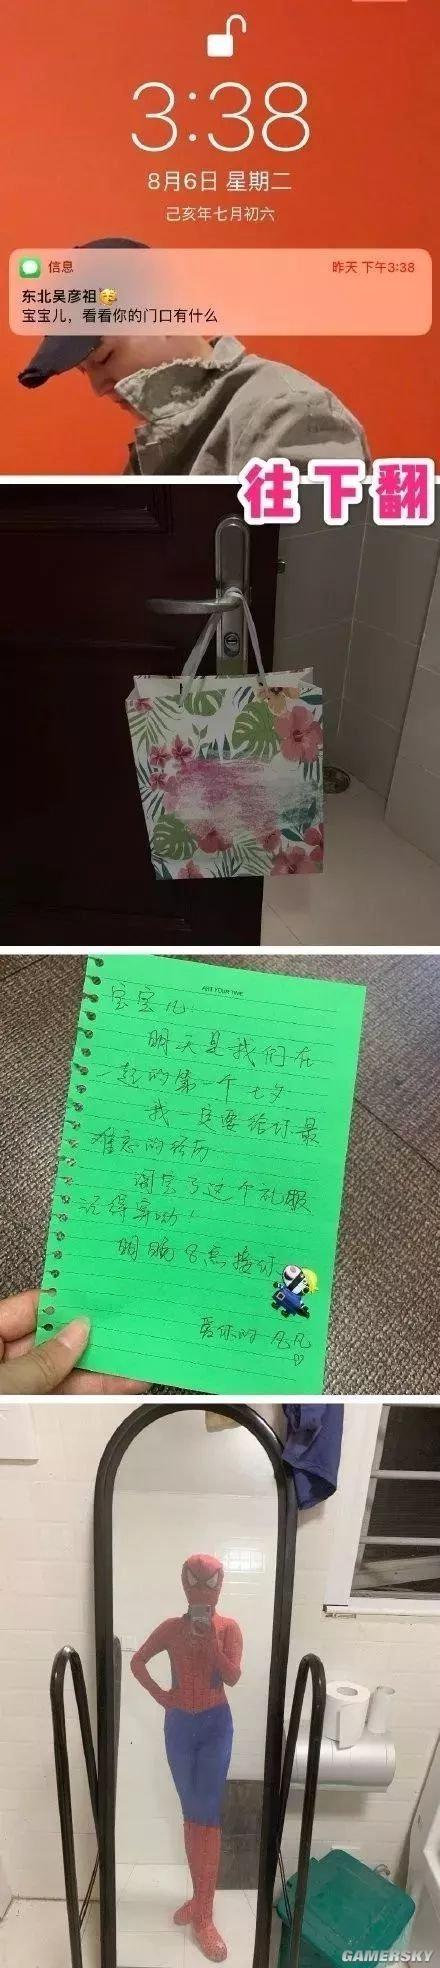 3:38
8月6日 星期二
己亥年七月初六
信息
昨天 下午3:38
东北吴彦祖🥳
宝宝儿，看看你的门口有什么
往下翻
ART YOUR TIME
宝宝儿:
明天是我们在
一起的第一个七夕
我一定要给你最
难忘的经历
淘宝了这个礼服
记得穿呦!
明晚8点接你
爱你的 凡凡
GAMERSKY